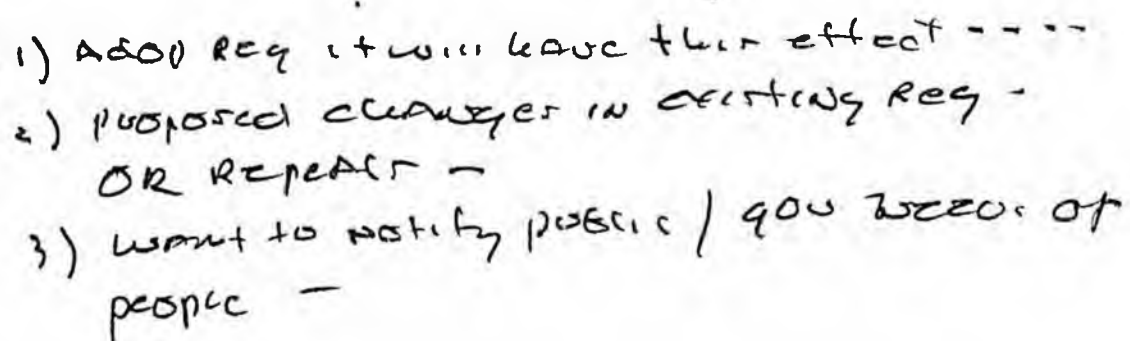 1) Adop Reg it will have this effect ----
2) proposed changes in existing Reg -
OR Repeals -
3) want to notify public / gov of
people -